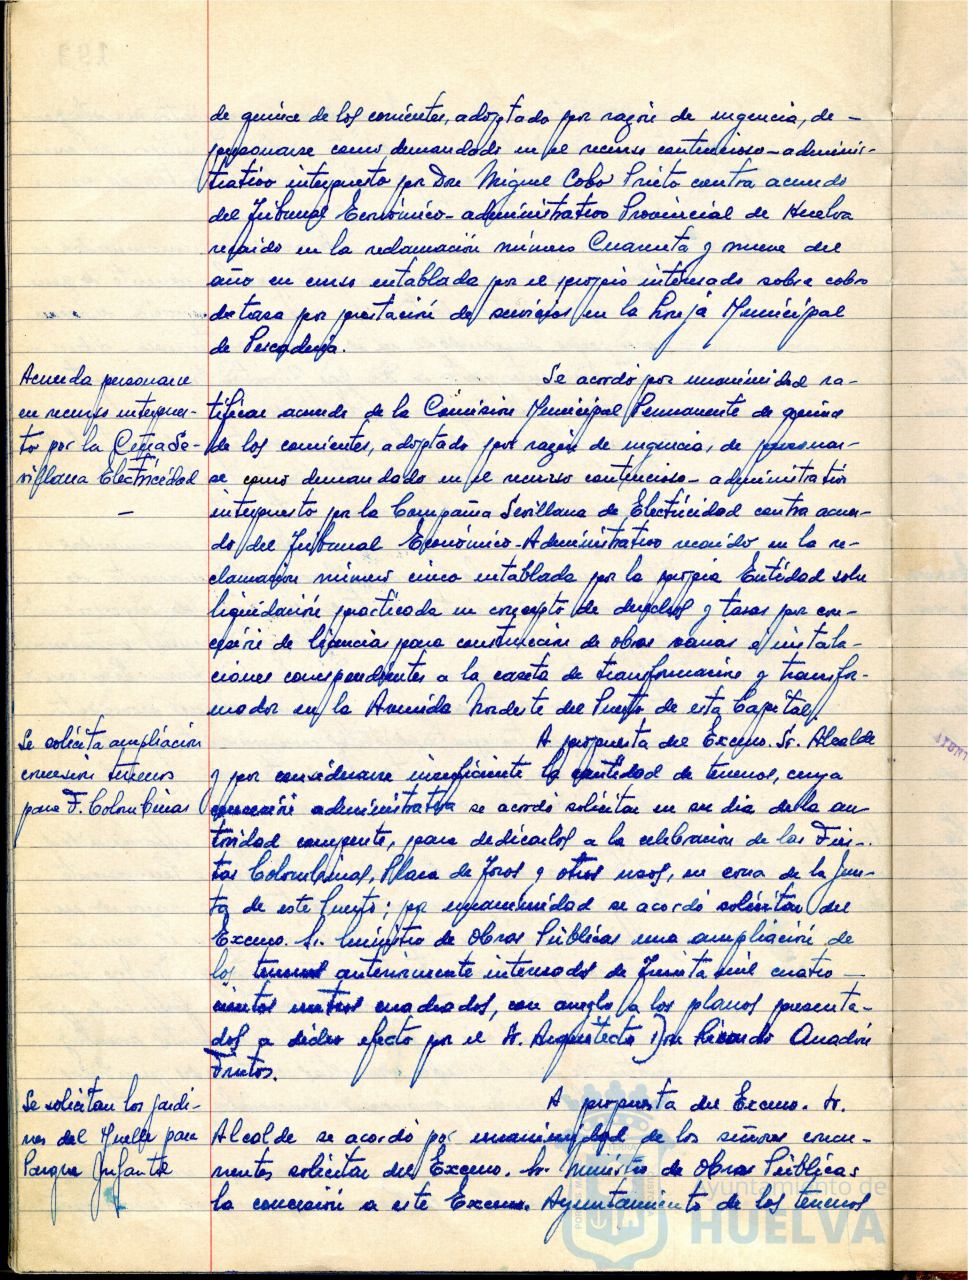 de quince de los corrientes, adoptado por razón de urgencia, de -
personarse como demandado en el recurso contencioso-adminis-
trativo interpuesto por Don Miguel Cobo Prieto contra acuerdo
del Tribunal Económico-administrativo Provincial de Huelva
recaido en la reclamación número Cuarenta y nueve del
año en curso entablada por el propio interesado sobre cobro
de tasa por prestación de servicios en la Lonja Municipal
de Pescadería.
Acuerda personarse
en recurso interpues-
to por la Cñía Se-
villana Electricidad
Se acordó por unanimidad ra-
tificar acuerdo de la Comision Municipal Permanente de quince
de los corrientes, adoptado por razón de urgencia, de personar-
se como demandado en el recurso contencioso-administrativo
interpuesto por la Compañia Sevillana de Electricidad contra acuer-
do del Tribunal Económico-Administrativo recaido en la re-
clamación número cinco entablada por la propia Entidad sobre
liquidación practicada en concepto de derechos y tasas por con-
cesión de licencias para construccion de obras varias e instala-
ciones correspondientes a la caseta de transformación y transfor-
mador en la Avenida Nordeste del Puerto de esta Capital.
Se solicita ampliacion
concesion terrenos
para F. Colombinas
A propuesta del Excmo. Sr. Alcalde
y por considerarse insuficiente la cantidad de terrenos, cuya
concesión administrativa se acordó solicitar en su dia de la au-
toridad competente, para dedicarlos a la celebracion de las Fies-
tas Colombinas, Plaza de Toros y otros usos, en zona de la Jun-
ta de este Puerto; por unanimidad se acordó solicitar del
Excmo. Sr. Ministro de Obras Públicas una ampliación de
los terrenos anteriormente interesados de Treinta mil cuatro -
cientos metros cuadrados, con arreglo a los planos presenta-
dos a dicho efecto por el Sr. Arquitecto Don Ricardo Anadón
Frutos.
Se solicitan los jardi-
nes del Muelle para
Parque Infantil
A propuesta del Excmo. Sr.
Alcalde se acordó por unanimidad de los señores concu-
rrentes solicitar del Excmo. Sr. Ministro de Obras Públicas
la concesión a este Excmo. Ayuntamiento de los terrenos
Ayuntamiento de
HUELVA